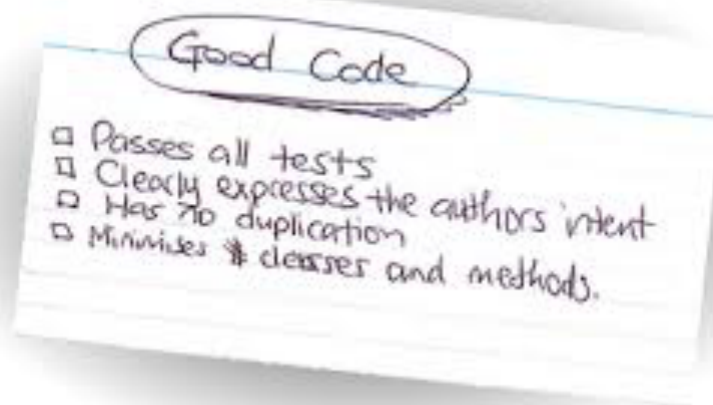 Good Code
Passes all tests
Clearly expresses the authors intent
Has no duplication
Minimises classes and methods.